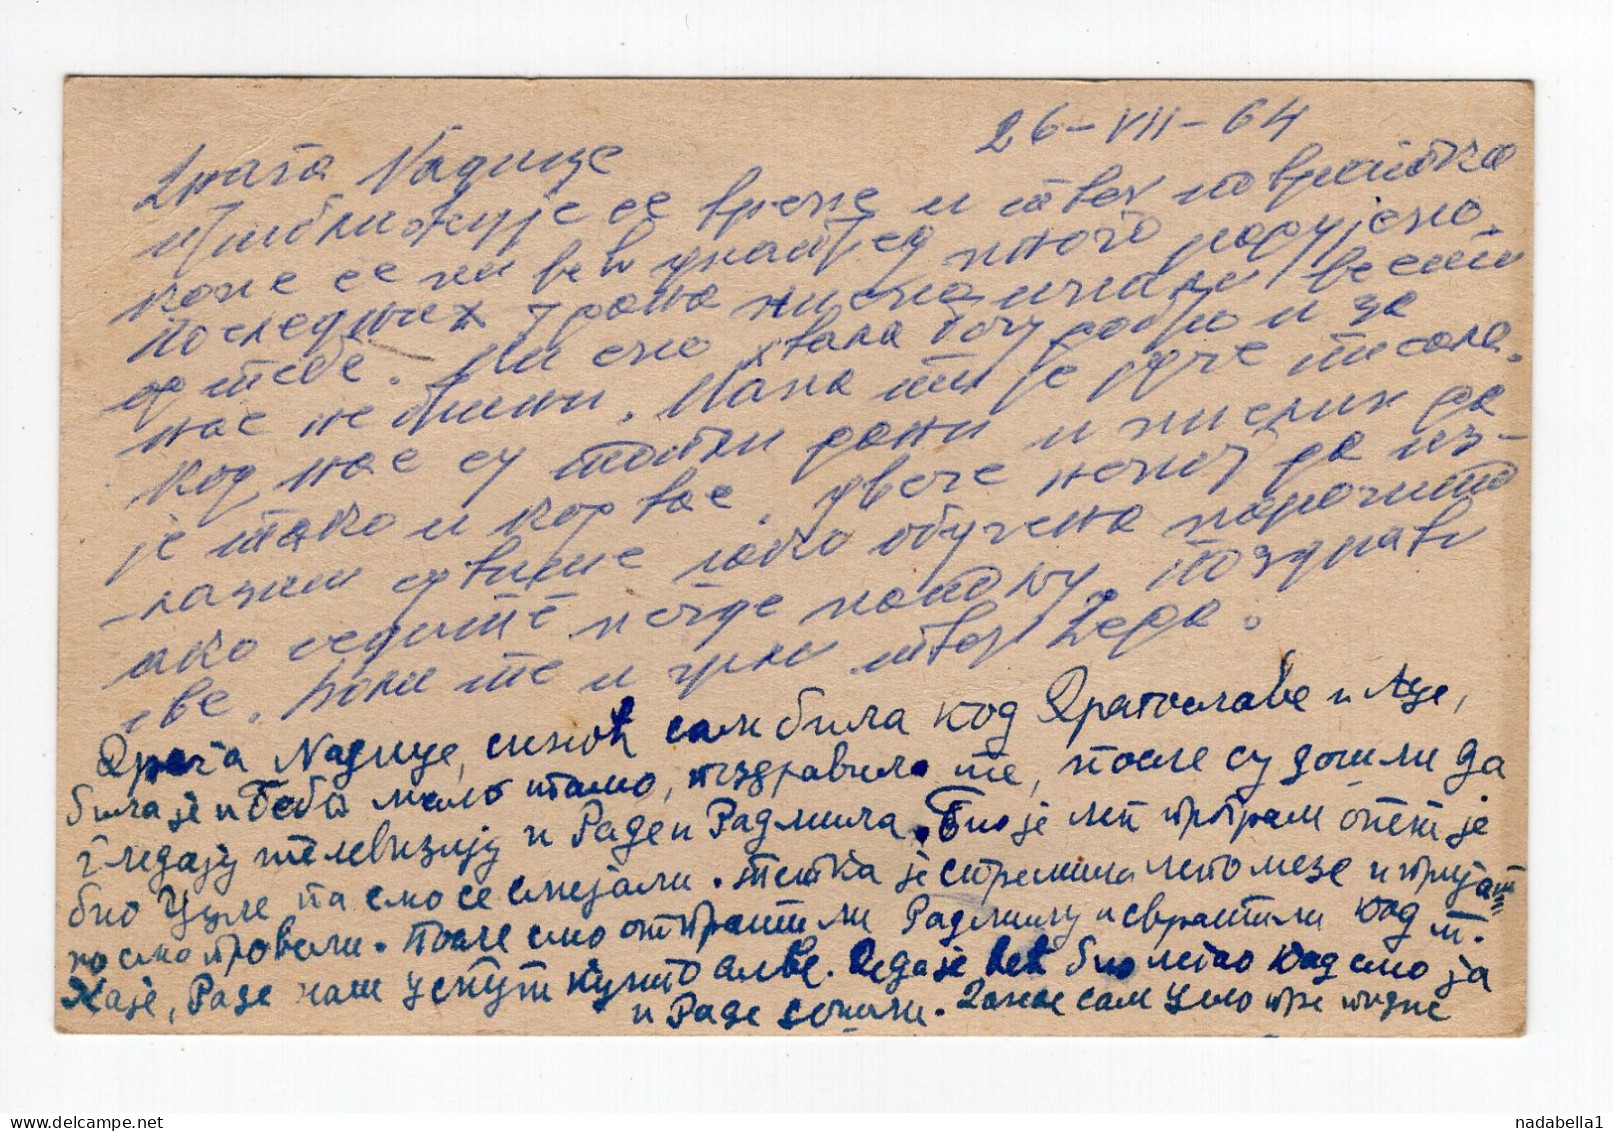 26-VII-64
Драга Надице
приближује се време и твог повратка
коме се ми већ унапред много радујемо.
Последњих дана нисмо имали вести
од тебе. Ми смо хвала богу добро и за
нас не брини. Мама ти је јуче писала.
Код нас су топли дани и мислим да
је тако и код вас, увече немој да из-
лазиш сувише лако обучена нарочито
ако седите негде напољу. Поздрави
све. Воли те и грли твој Деда.
Драга Надице, синоћ сам била код Братославе и Аце,
била је и Беба мало тамо, поздравила те, после су дошли да
гледају телевизију и Раде и Радмила. Био је леп програм опет је
био Чуле па смо се смејали. Тетка је спремила лепо мезе и пријат
но смо провели. После смо отпратили Радмилу и свратили код т.
Наје, Раде нам успут купио алве. Деда је већ био легао кад смо ја
и Раде дошли. Данас сам ишла пре подне
nadabella1